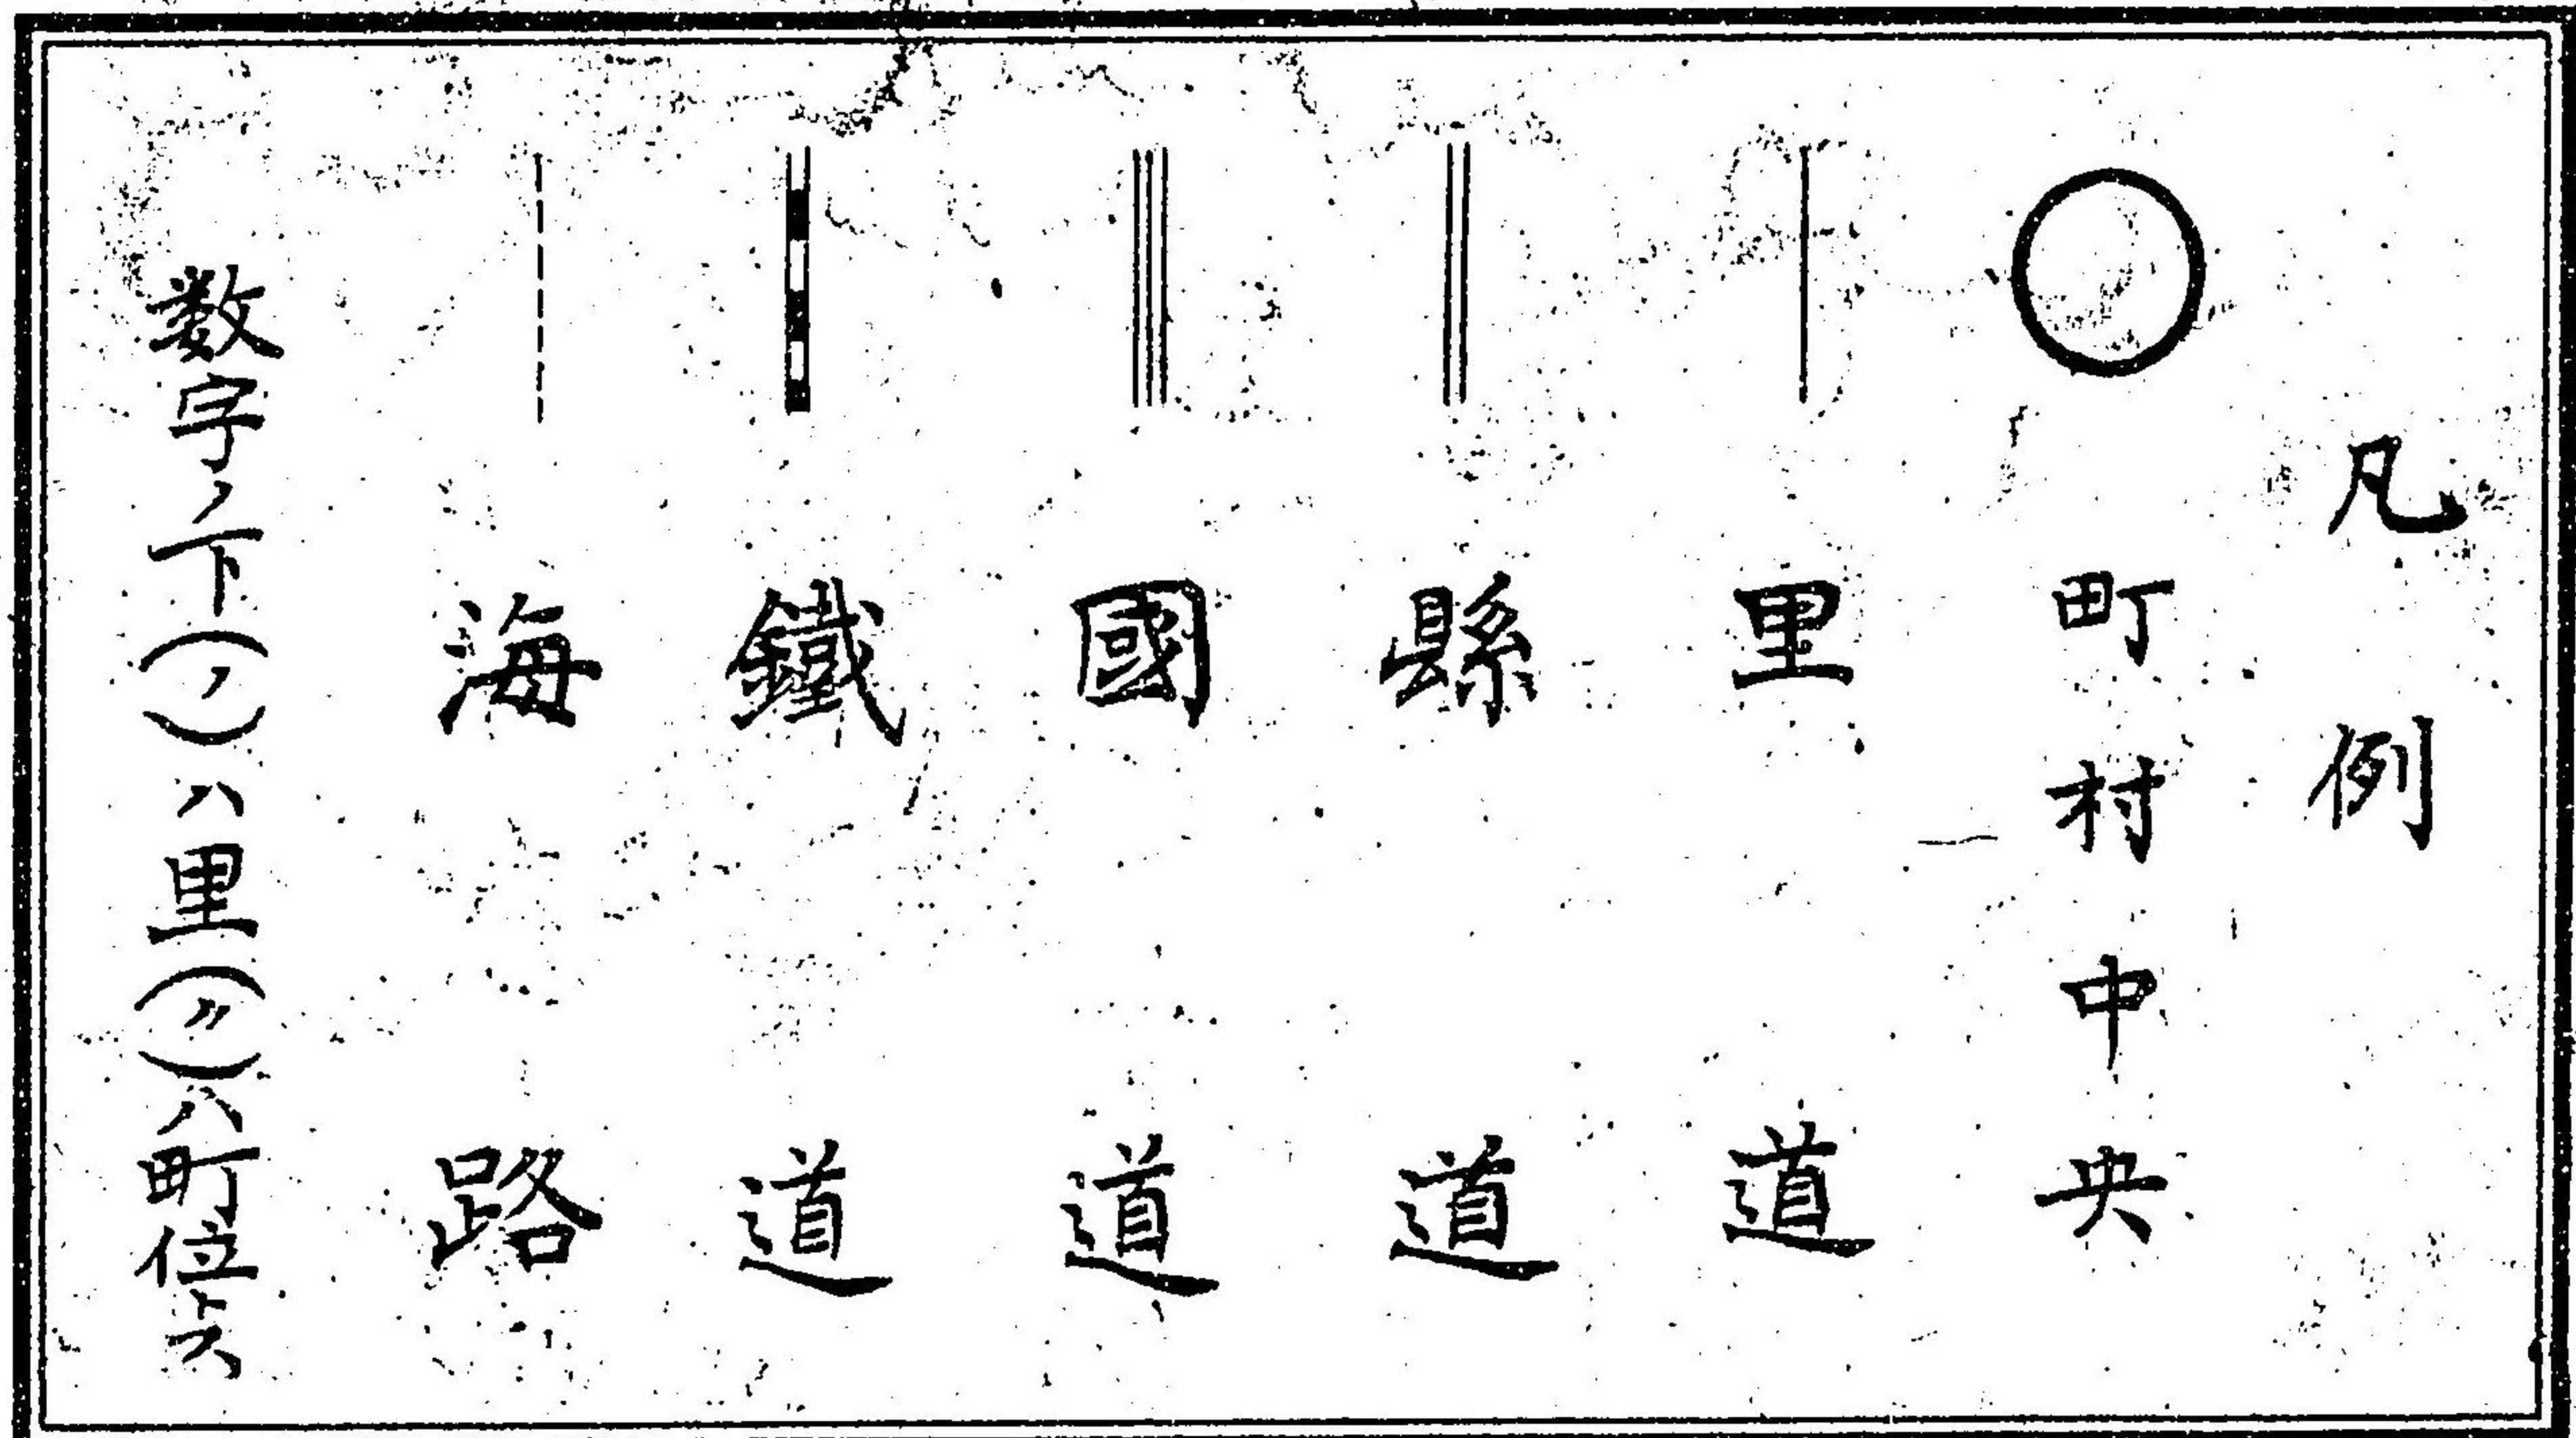 凡例
町村中央
里道
縣道
國道
鐵道
海路
数字ノ下(ノ)ハ里(〃)ハ町位トス